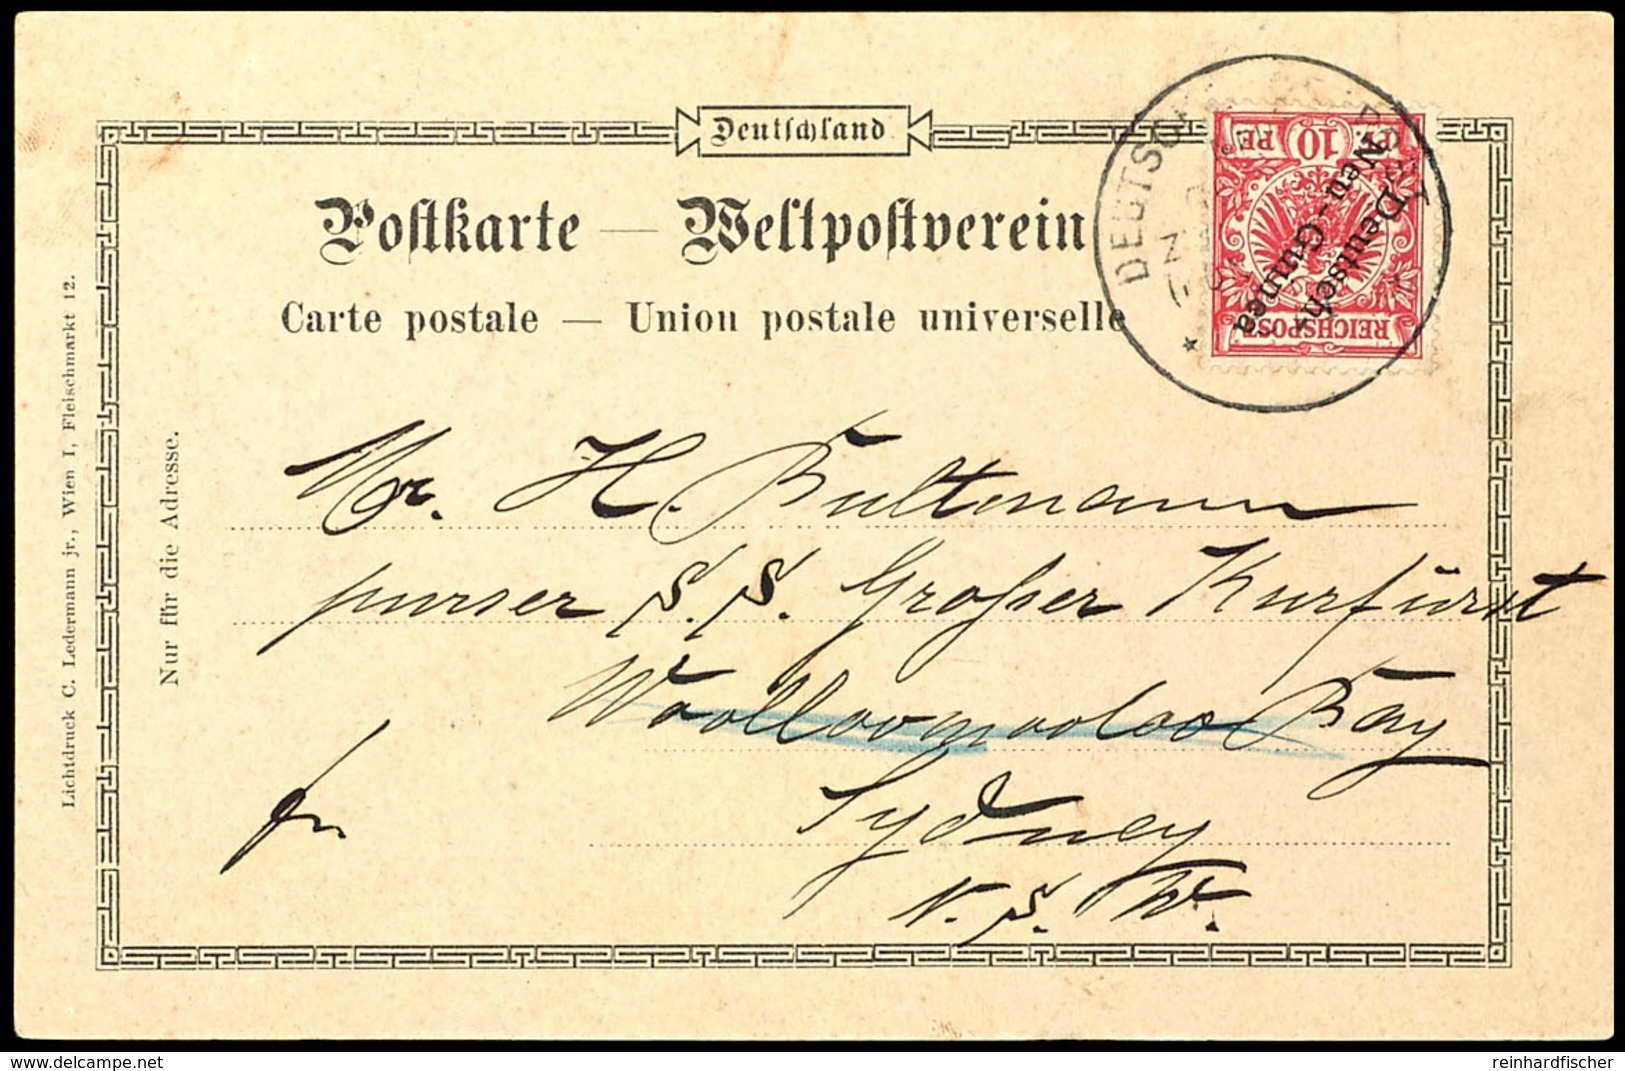 Deutschland
Postkarte — Weltpostverein
Carte postale — Union postale universelle
DEUTSCH
10
REICHSPOST
Deutsch-
Neu-Guinea
Mr. H. Bultmann
purser S.S. Großer Kurfürst
Woolloomooloo Bay
Sydney
N.S.W.
Nur für die Adresse.
Lichtdruck C. Ledermann jr., Wien I, Fleischmarkt 12.
www.delcampe.net
reinhardfischer